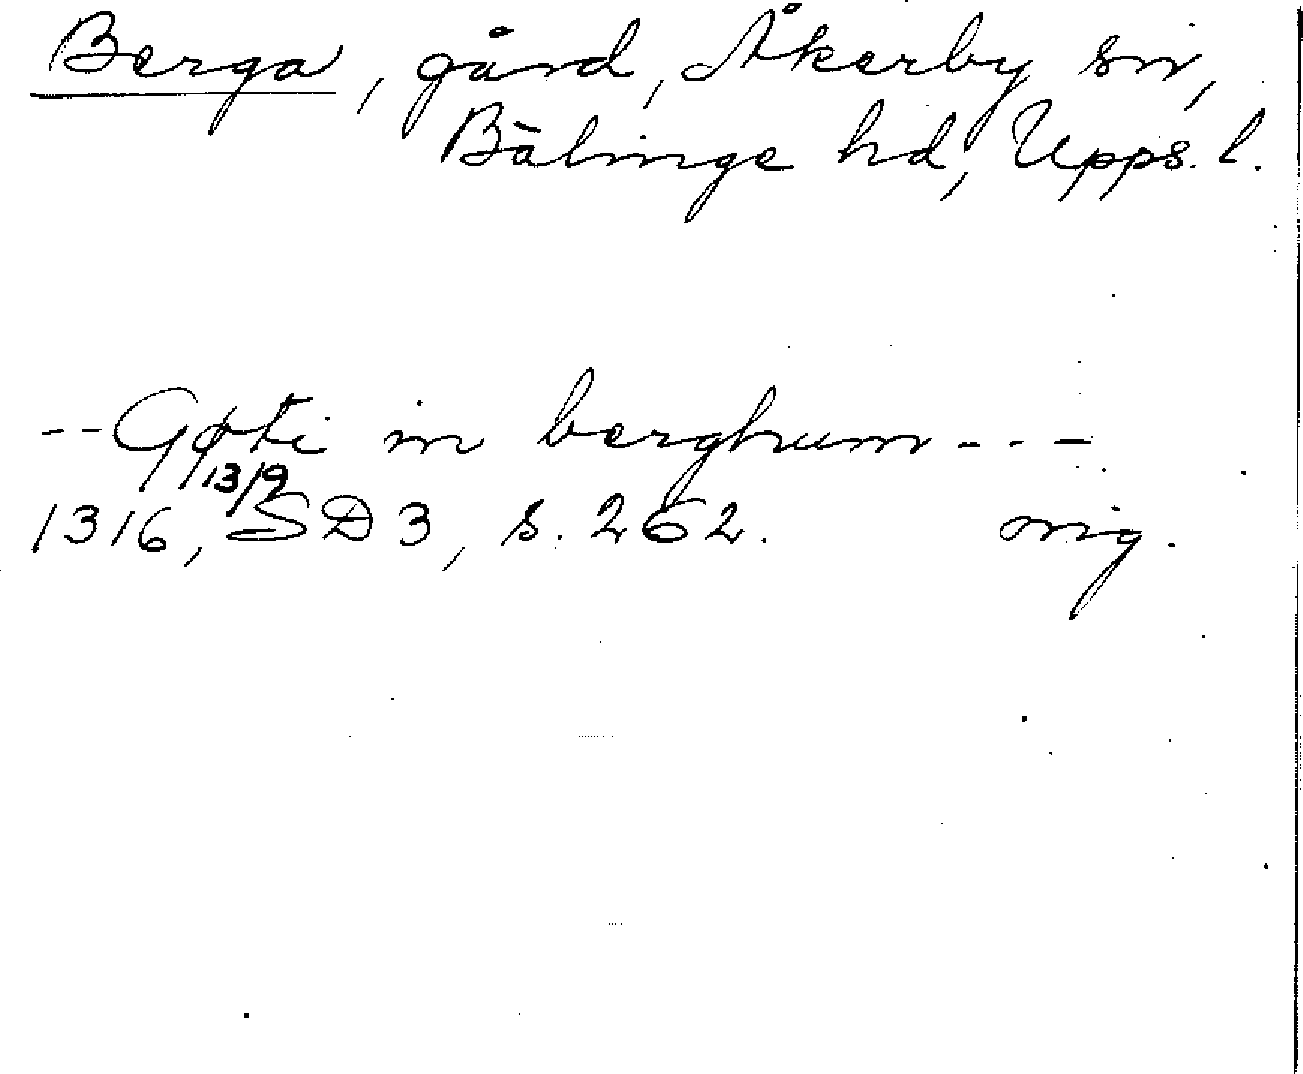 Berga, gård, Åkerby sn,
Bälinge hd, Upps. l.
-- Gøti in berghum ---
13/9
1316, SD 3, s. 262. orig.